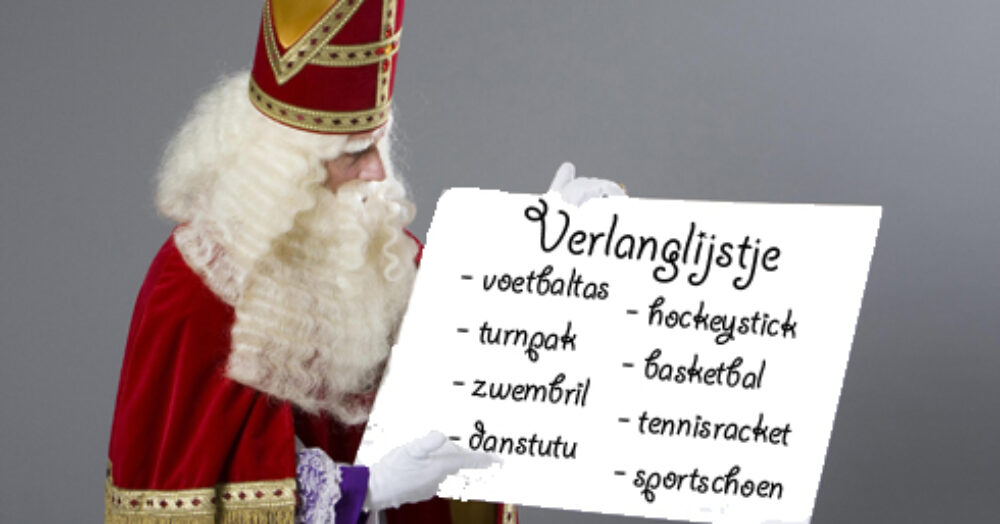 Verlanglijstje
- voetbaltas
- turnpak
- zwembril
- danstutu
- hockeystick
- basketbal
- tennisracket
- sportschoen